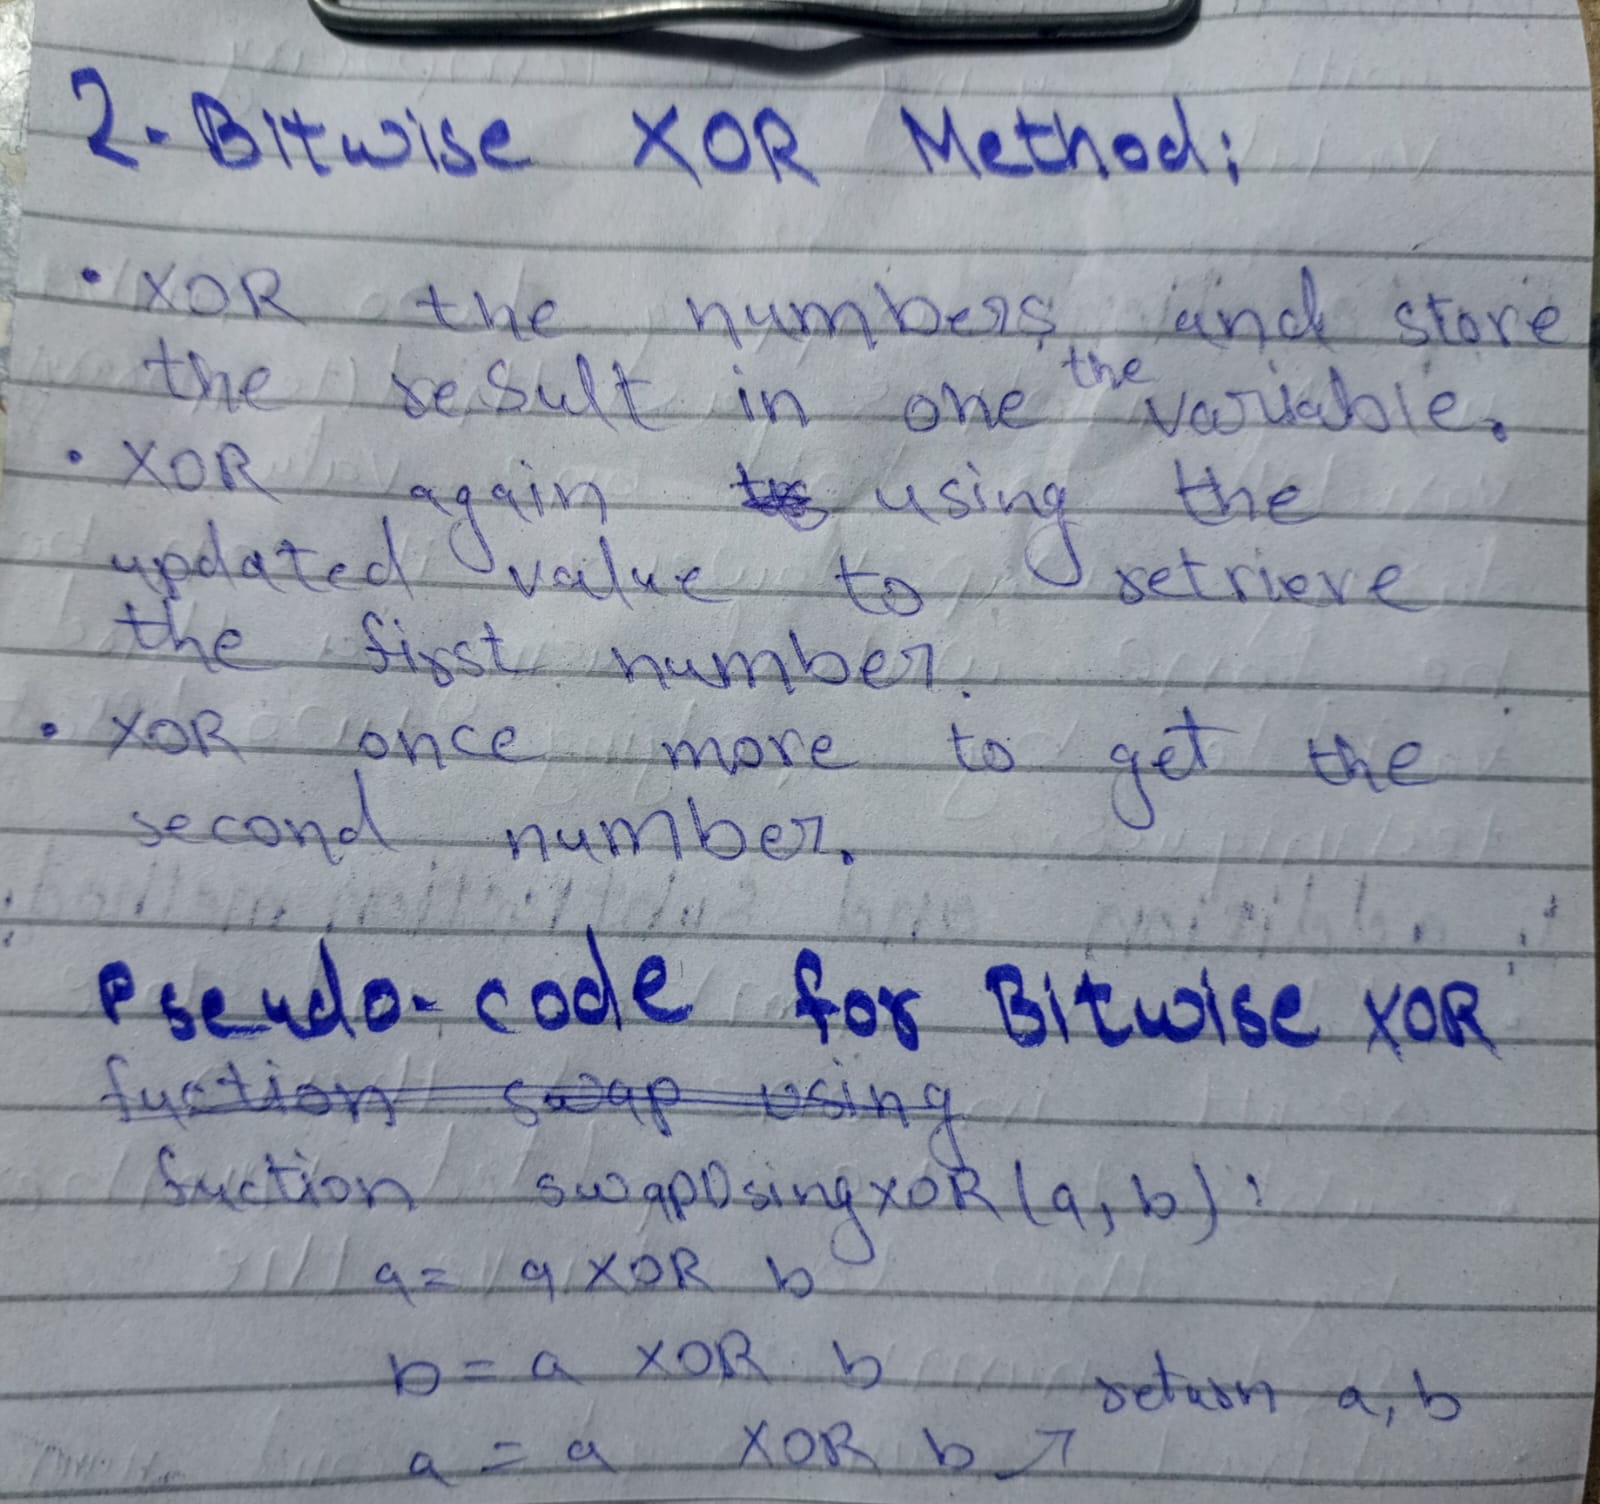 2. Bitwise XOR Method:
• XOR the numbers and store
the result in one the variable.
• XOR again using the
updated value to retrieve
the first number.
• XOR once more to get the
second number.
Pseudo-code for Bitwise XOR
fuction swap using
fuction swapUsingXOR(a, b):
a = a XOR b
b = a XOR b
return a, b
a = a XOR b ↗